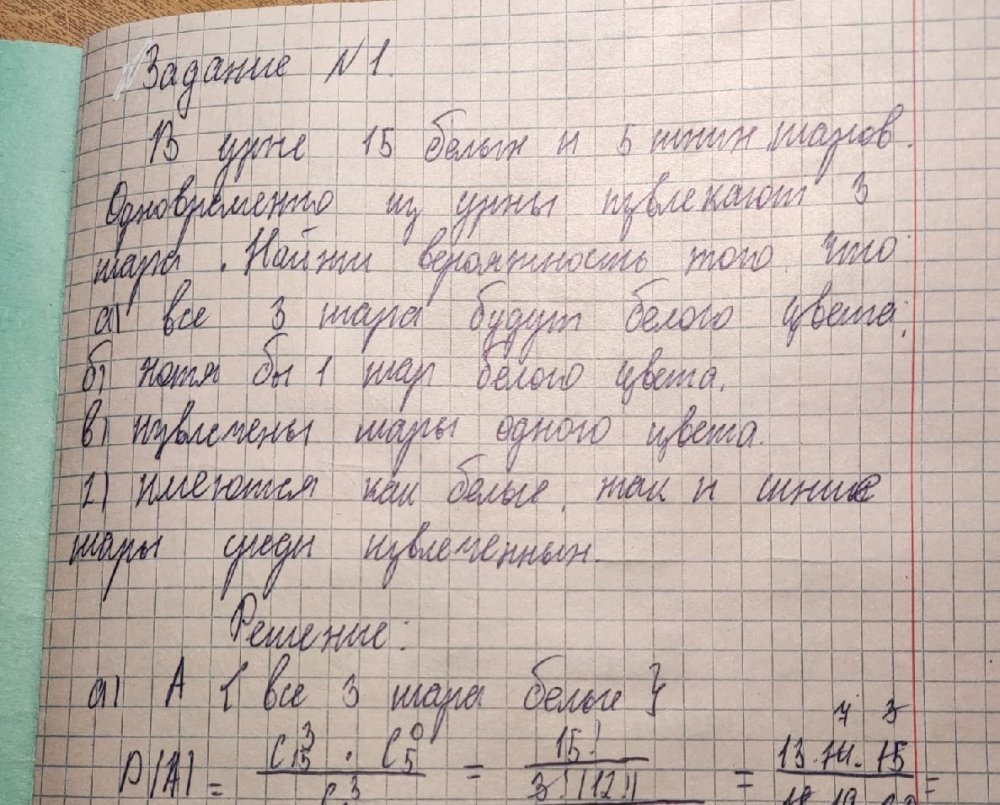 Задание N1.
В урне 15 белых и 5 синих шаров.
Одновременно из урны извлекают 3
шара. Найти вероятность того, что
а) все 3 шара будут белого цвета;
б) хотя бы 1 шар белого цвета.
в) извлечены шары одного цвета.
г) имеются как белые, так и синие
шары среди извлеченных.
Решение:
а) A { все 3 шара белые }
7 5
P(A) = C³₁₅ · C⁰₅ = 15! = 13·14·15 =
3!(12!)